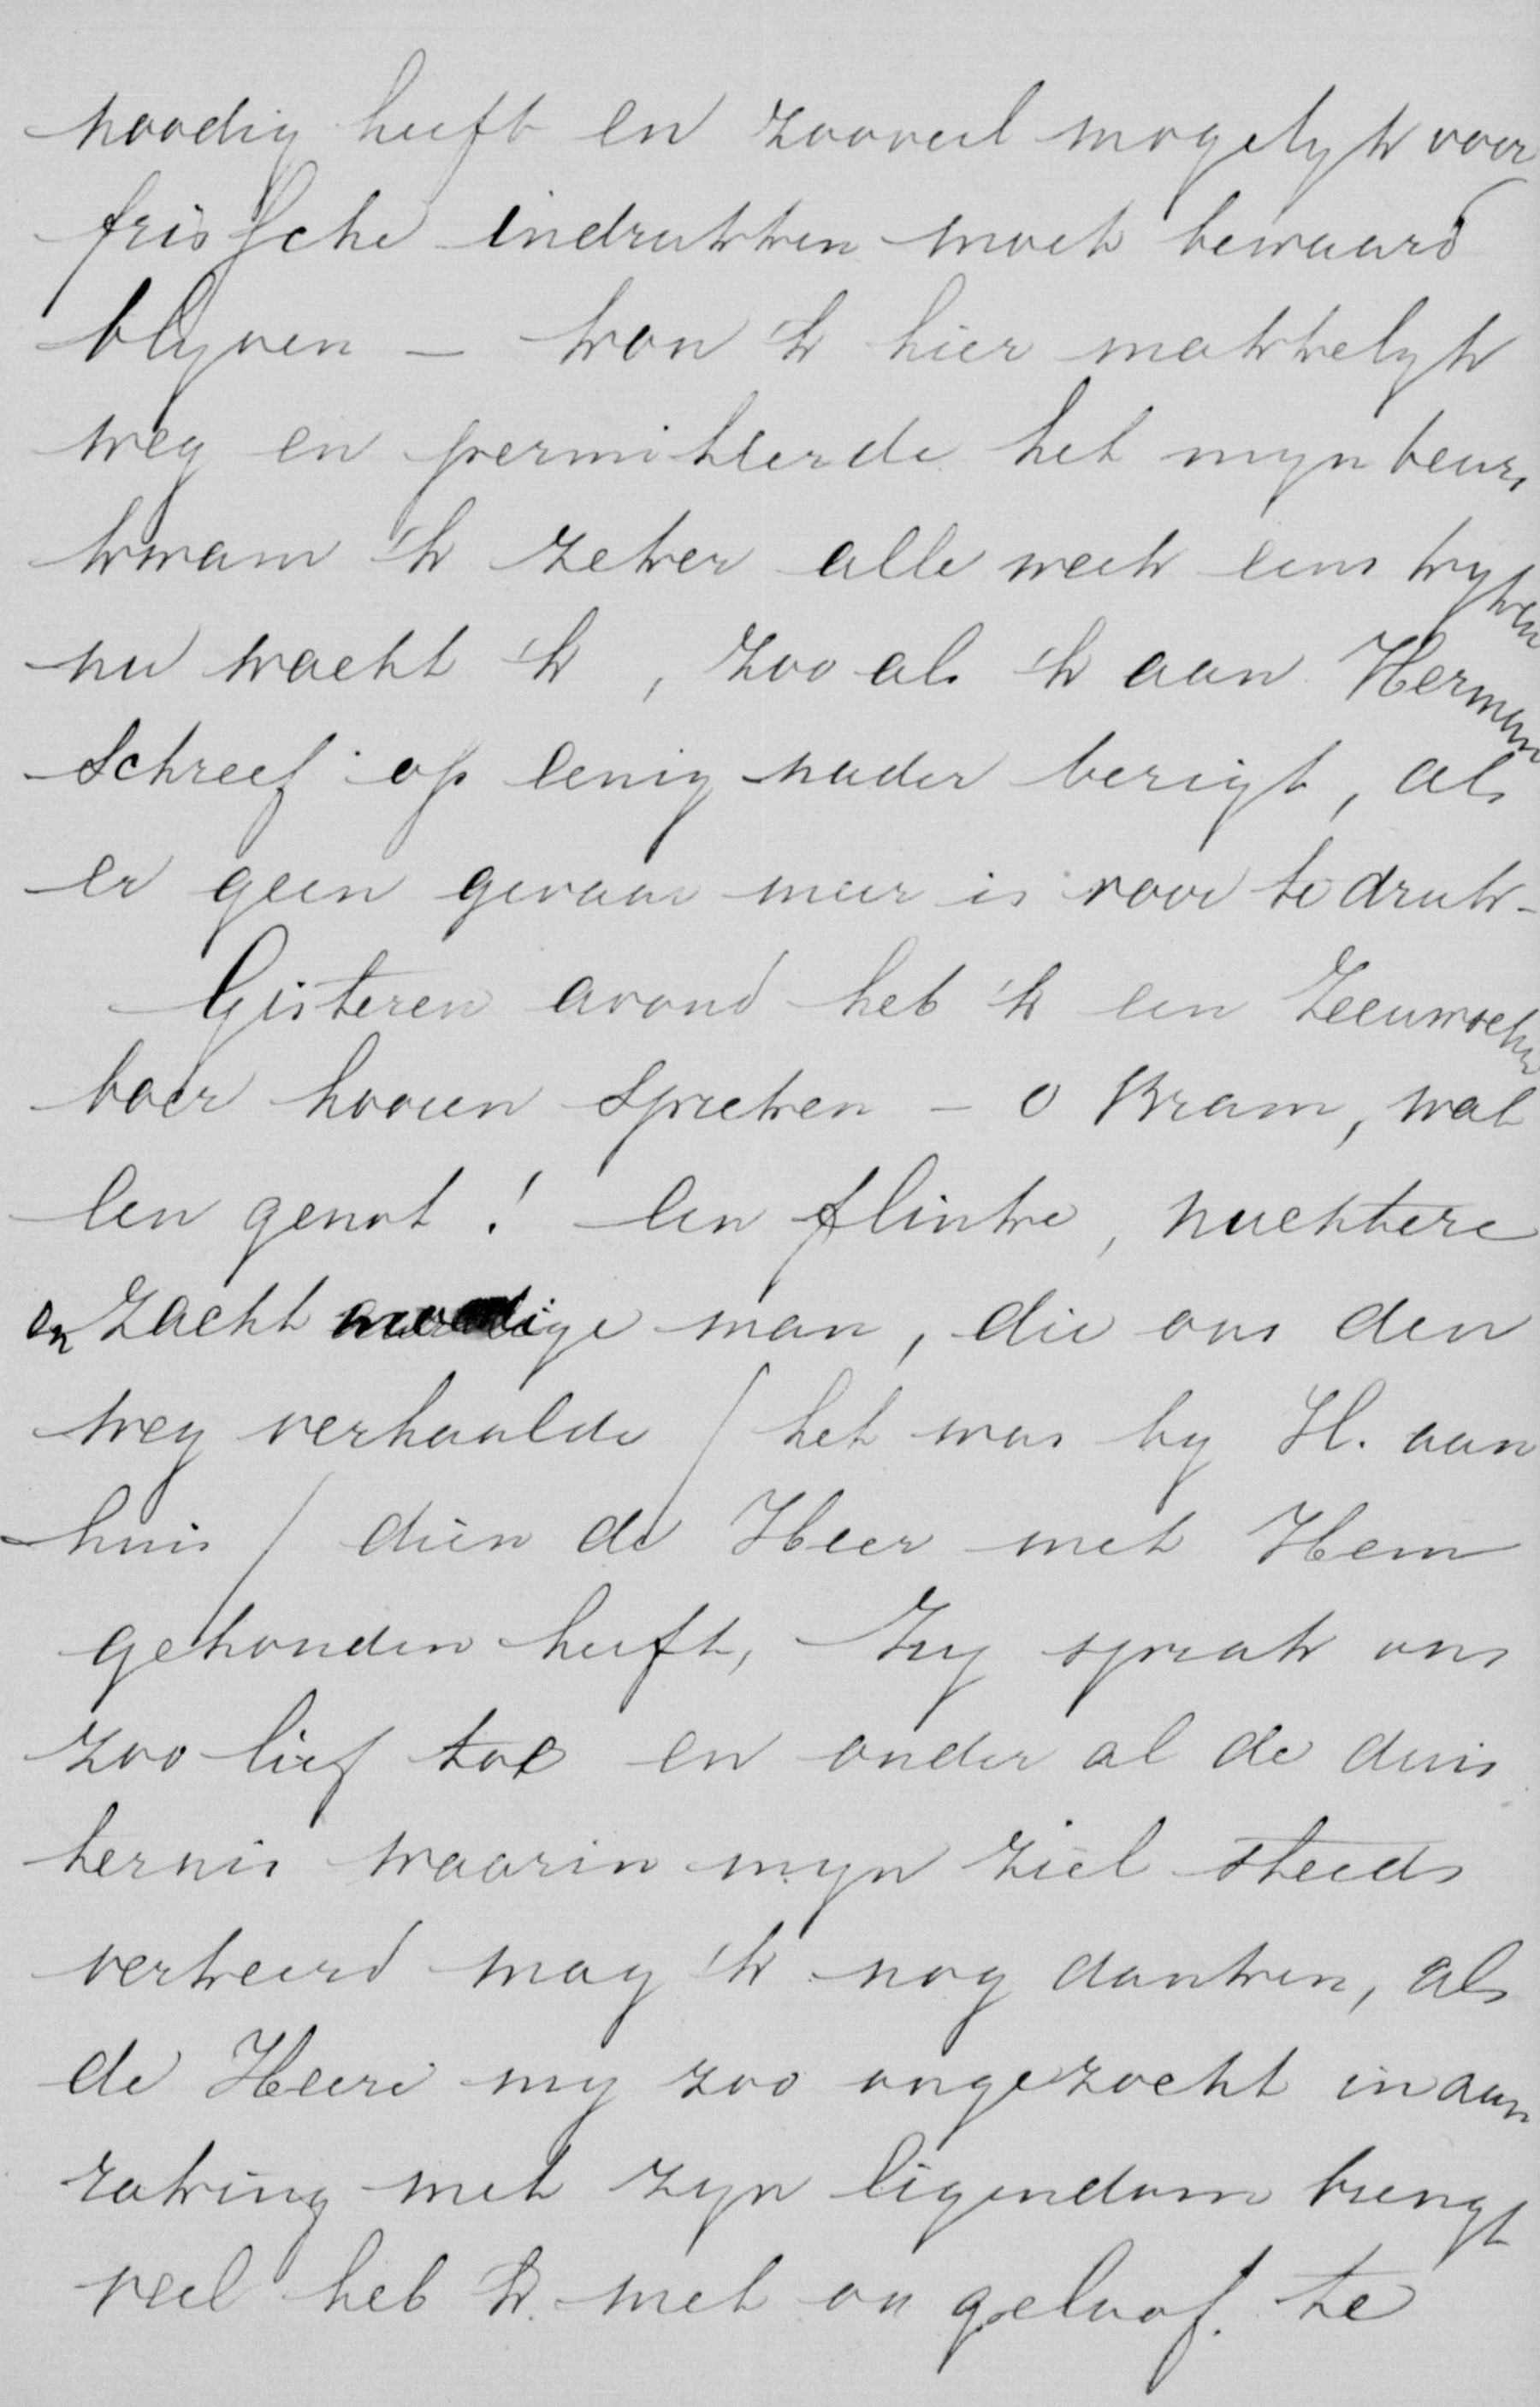 noodig heeft en zooveel mogelyk voor
frissche indrukken moet bewaard
blyven – kon 'k hier makkelyk
weg en permitteerde het myn beurs
kwam 'k zeker alle week eens kyken
nu wacht 'k, zoo als 'k aan Herman
schreef op eenig nader berigt, als
er geen gevaar meer is voor te druk –
Gisteren avond heb 'k een Zeeuwsche
boer hooren spreken – o Bram, wat
een genot! een flinke, nuchtere
en zacht moedige man, die ons den
weg verhaalde / het was by H. aan
huis / dien de Heer met Hem
gehouden heeft, Hy sprak ons
zoo lief toe en onder al de duis
ternis waarin myn ziel steeds
verkeerd mag 'k nog danken, als
de Heere my zoo ongezocht in aan
raking met zyn eigendom brengt
veel heb 'k met on geloof te